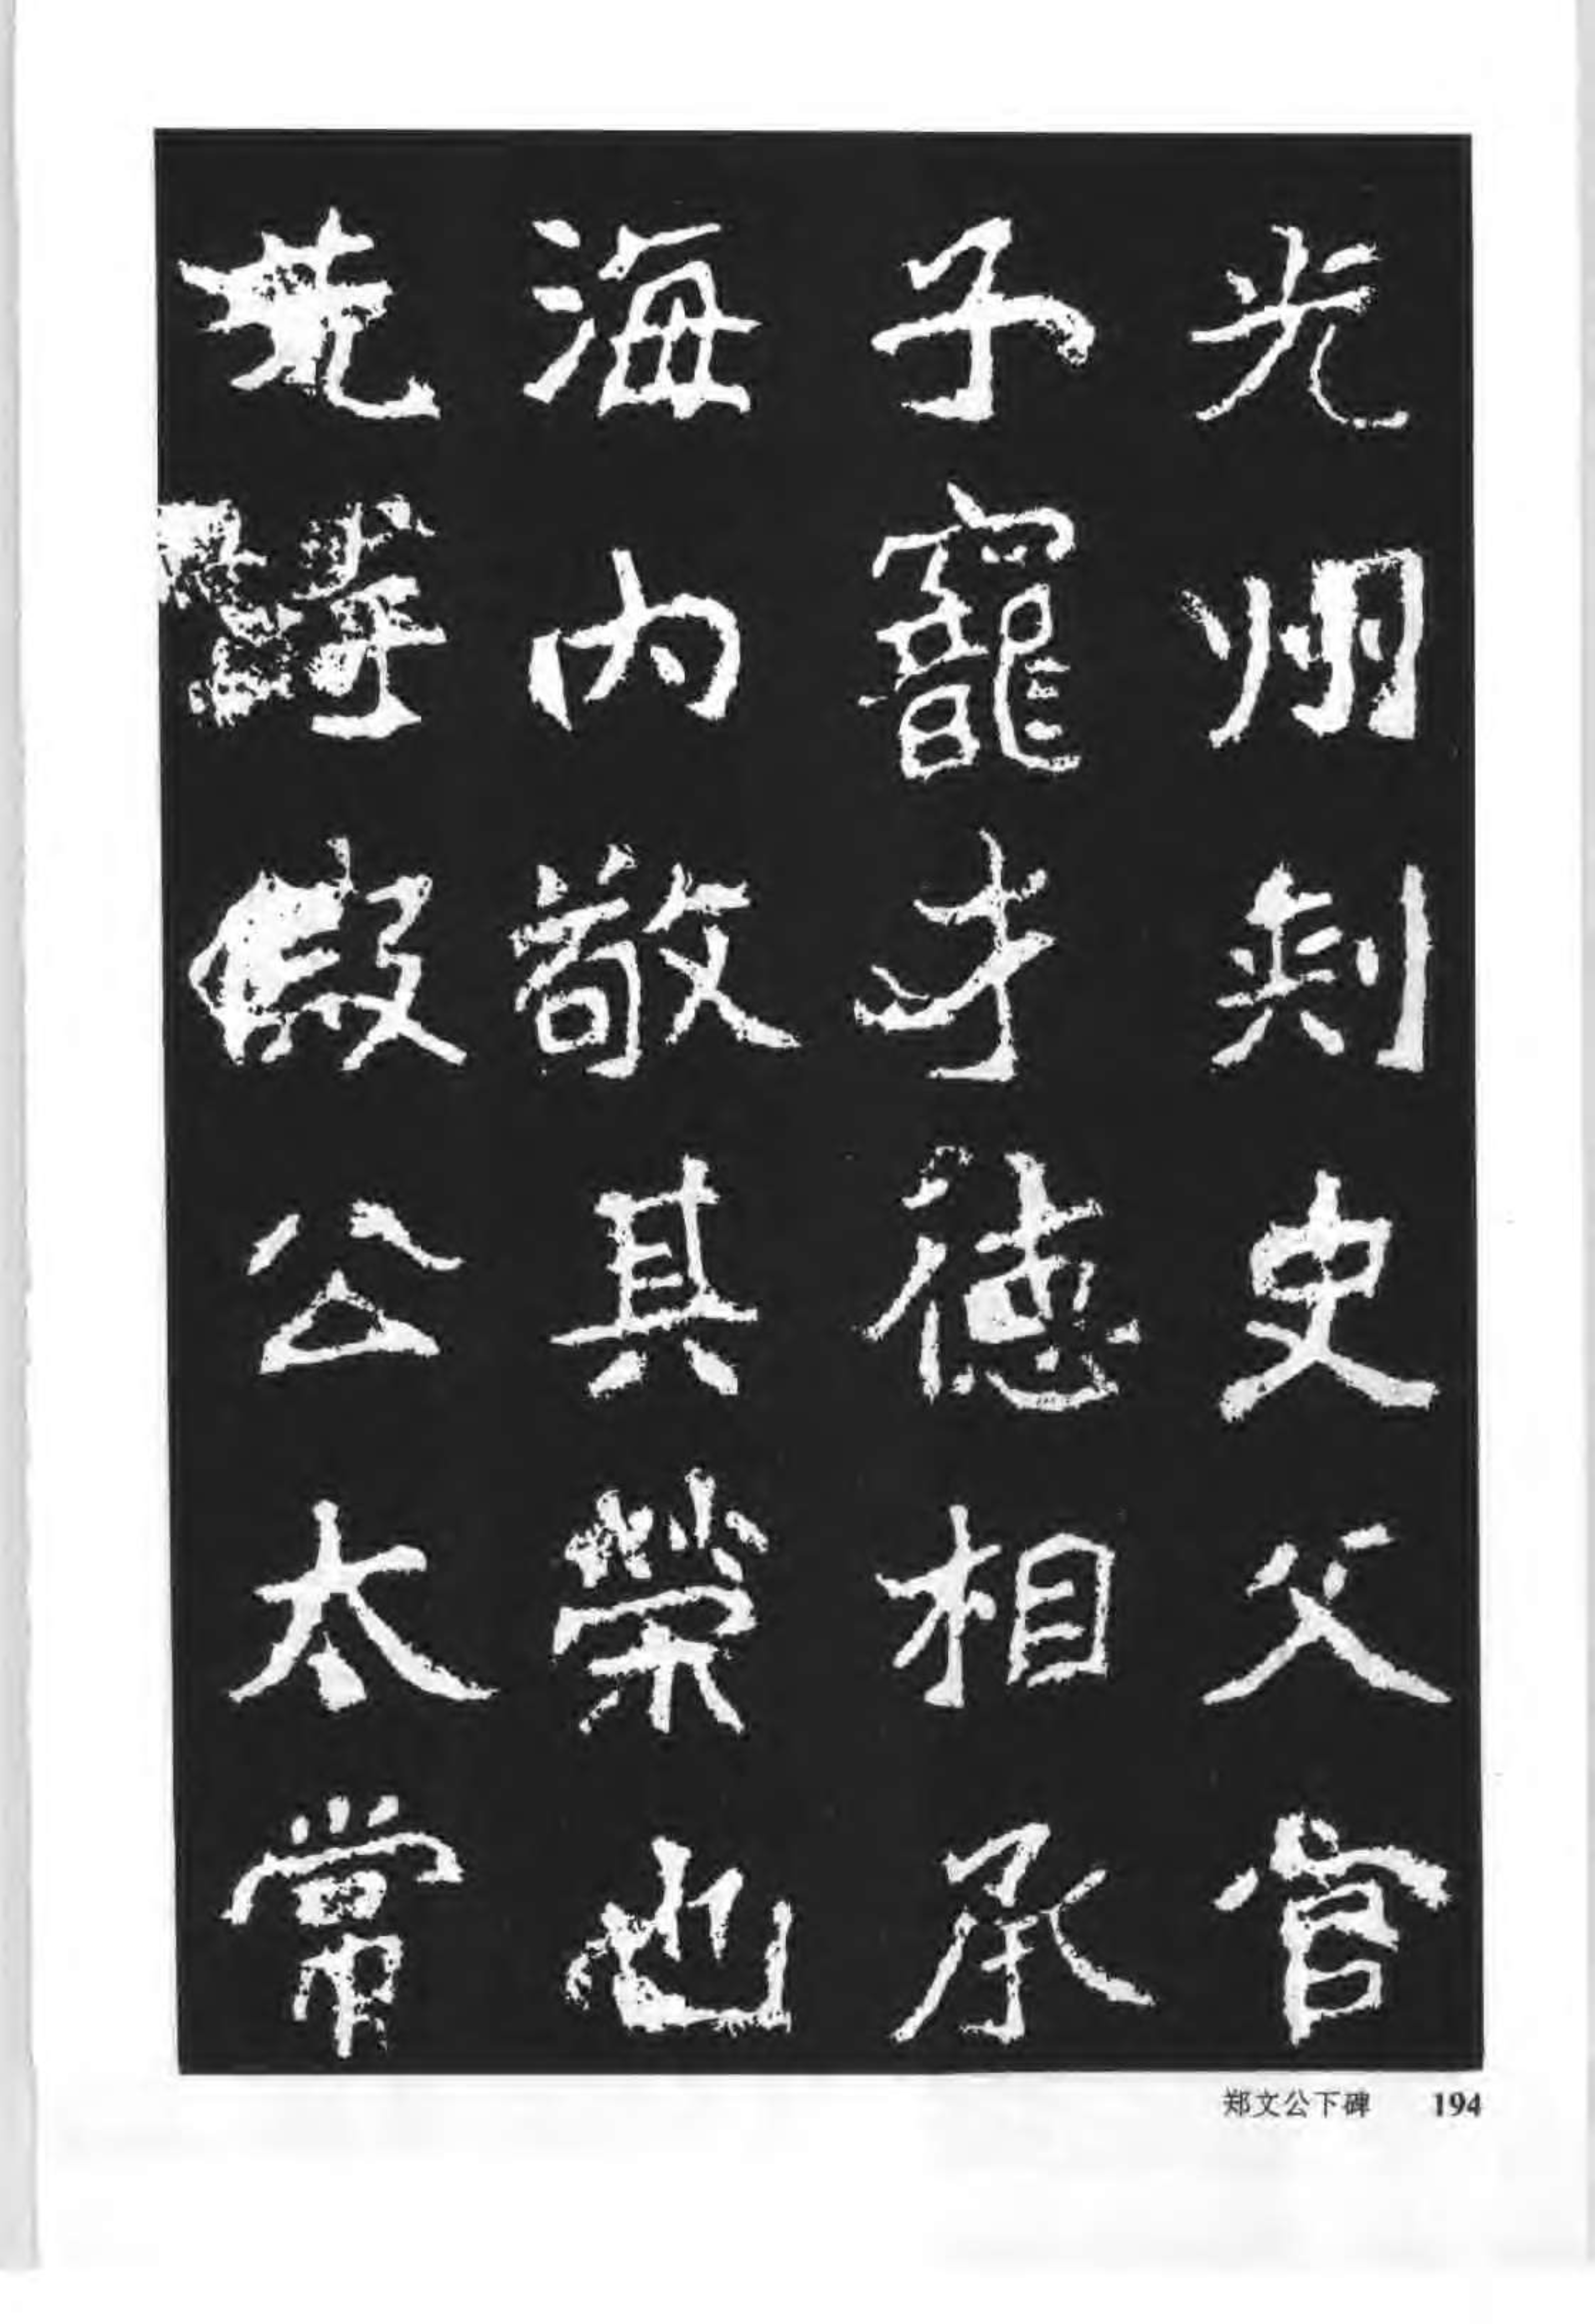 光州刺史父官
子寵才德相承
海内敬其榮也
先時假公太常
郑文公下碑 194